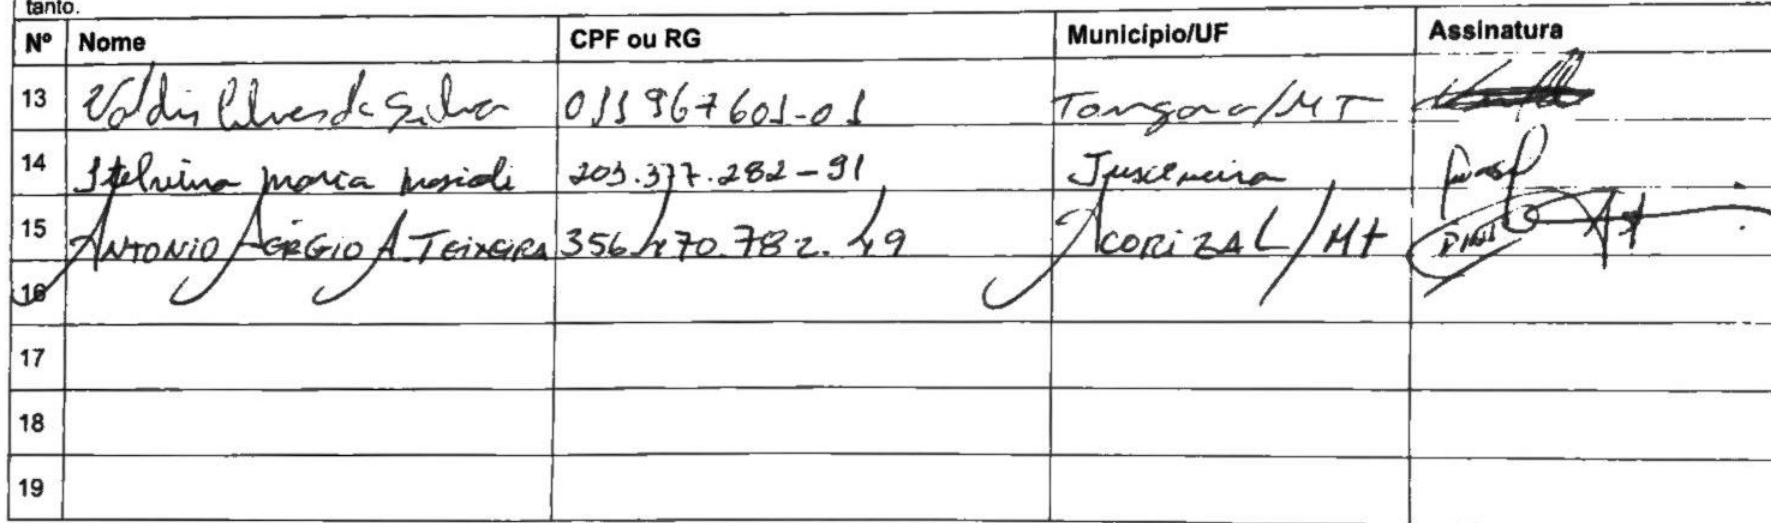 tanto.
Nº Nome CPF ou RG Município/UF Assinatura
13 Valdir Alves da Silva 011967601-01 Tangara/MT
14 Itelvina Maria 203.377.282-91 Juscimeira
15 ANTONIO SÉRGIO A. TEIXEIRA 356.470.782.49 ACORIZAL/MT
16
17
18
19